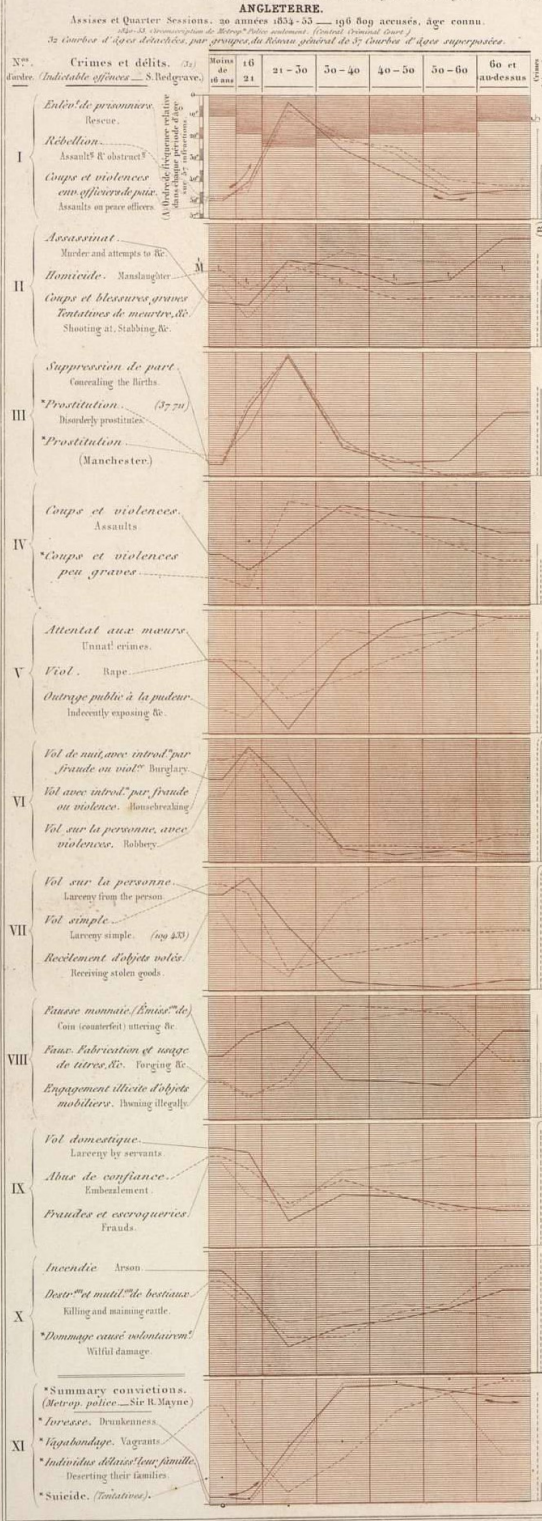 ANGLETERRE.
Assises et Quarter Sessions. 20 années 1834-53 — 196 809 accusés, âge connu.
1840-53. Circonscription de Metropn Police seulement. (Central Criminal Court)
32 Courbes d'âges détachées, par groupes, du Réseau général de 37 Courbes d'âges superposées.
Nos d'ordre.
Crimes et délits. (32)
(Indictable offences — S. Redgrave.)
Moins de 16 ans
16 21
21 – 30
30 – 40
40 – 50
50 – 60
60 et au-dessus
Crimes
(A) Ordre de fréquence relative
dans chaque période d'âge
sur 37 infractions
I
Enlèvt de prisonniers.
Rescue.
Rébellion
Assaults & obstructs
Coups et violences
env. officiers de paix.
Assaults on peace officers
II
Assassinat
Murder and attempts to &c.
Homicide. Manslaughter
Coups et blessures graves
Tentatives de meurtre, &c.
Shooting at, Stabbing, &c.
M
III
Suppression de part.
Concealing the Births.
*Prostitution. (37 711)
Disorderly prostitutes.
*Prostitution
(Manchester.)
IV
Coups et violences.
Assaults
*Coups et violences
peu graves
V
Attentat aux mœurs.
Unnatl crimes.
Viol. Rape.
Outrage public à la pudeur
Indecently exposing &c.
VI
Vol de nuit, avec introdn par
fraude ou violce Burglary
Vol avec introdn par fraude
ou violence. Housebreaking
Vol sur la personne, avec
violences. Robbery
VII
Vol sur la personne
Larceny from the person
Vol simple
Larceny simple. (109 433)
Recèlement d'objets volés.
Receiving stolen goods.
VIII
Fausse monnaie. (Émissn de)
Coin (counterfeit) uttering &c.
Faux. Fabrication et usage
de titres, &c. Forging &c.
Engagement illicite d'objets
mobiliers. Pawning illegally.
IX
Vol domestique
Larceny by servants.
Abus de confiance
Embezzlement.
Fraudes et escroqueries
Frauds.
X
Incendie Arson
Destron et mutilon de bestiaux
Killing and maiming cattle.
*Dommage causé volontairemt
Wilful damage.
XI
*Summary convictions.
(Metrop. police — Sir R. Mayne)
*Ivresse. Drunkenness.
*Vagabondage. Vagrants
*Individus délaisst leur famille
Deserting their families.
*Suicide. (Tentatives).